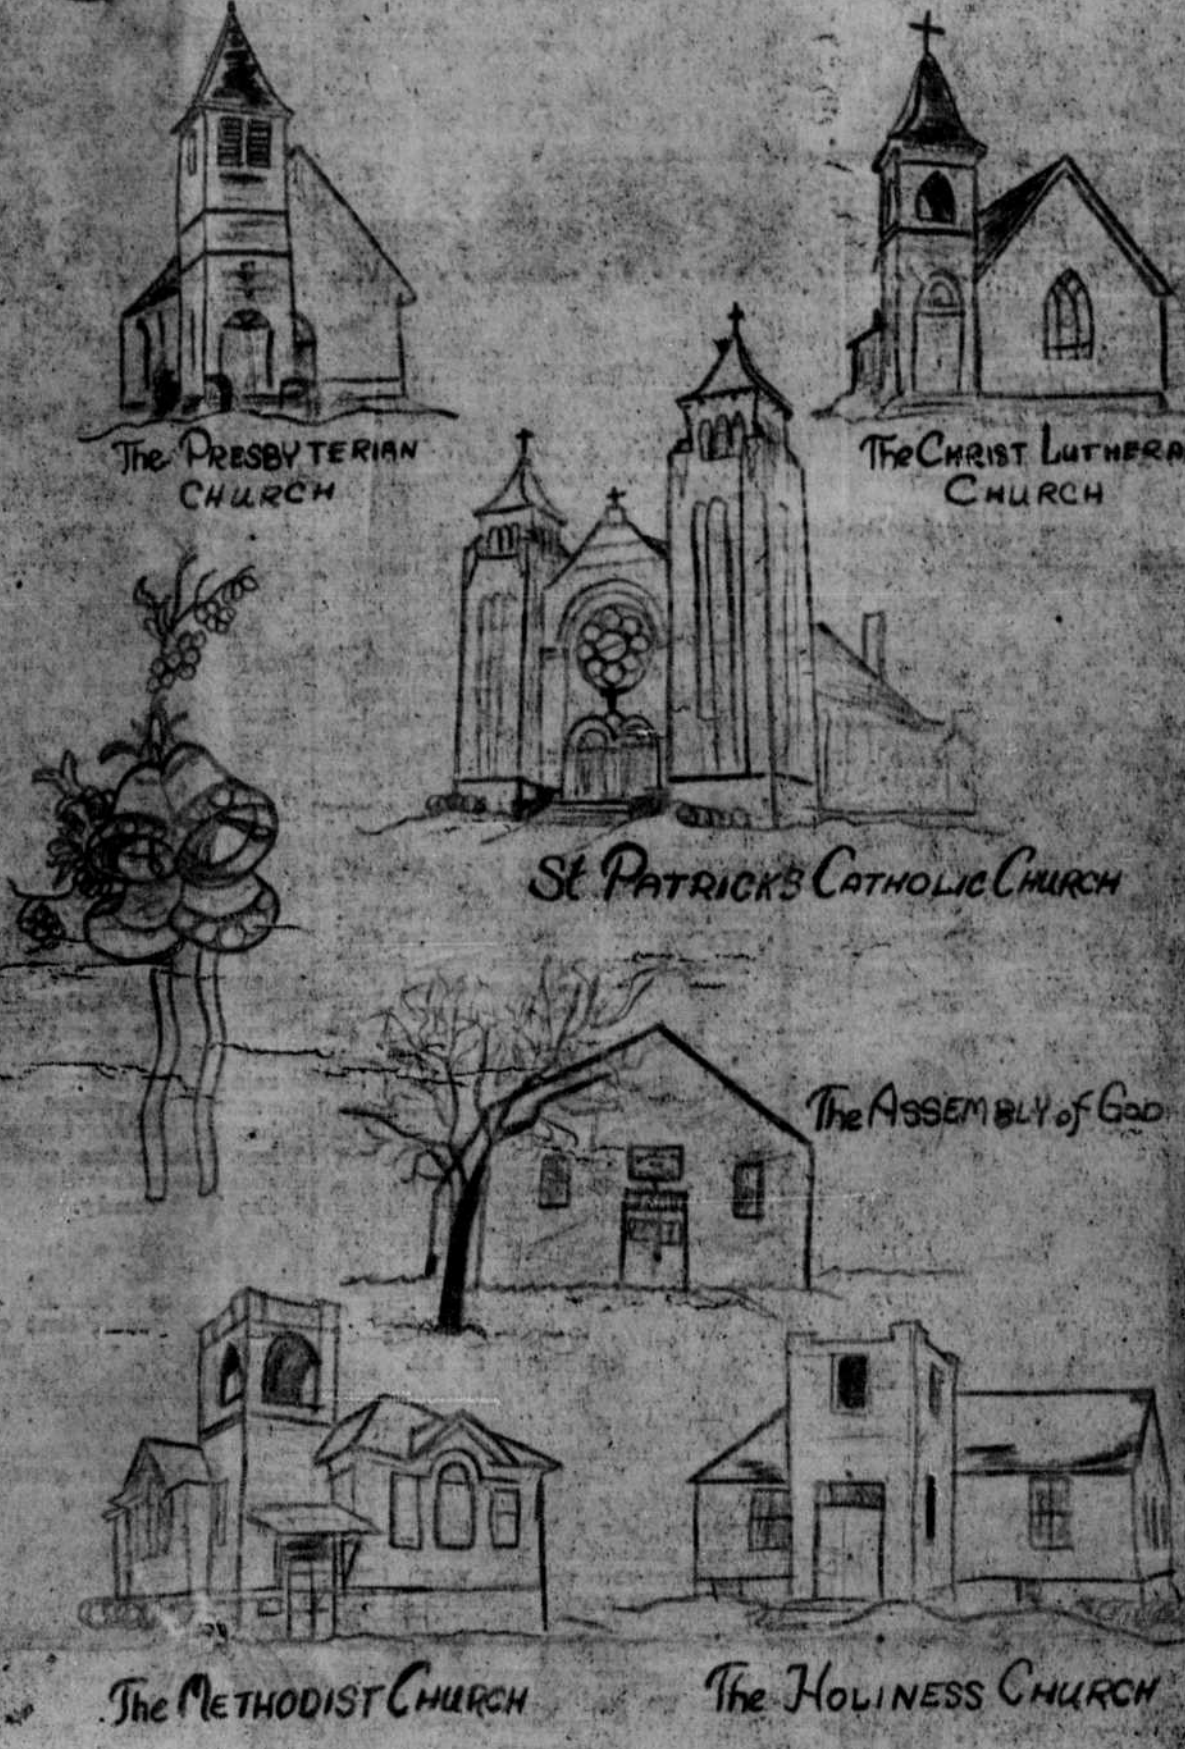 The PRESBYTERIAN
CHURCH
The CHRIST LUTHERA
CHURCH
St PATRICKS CATHOLIC CHURCH
The ASSEMBLY of GOD
The METHODIST CHURCH
The HOLINESS CHURCH